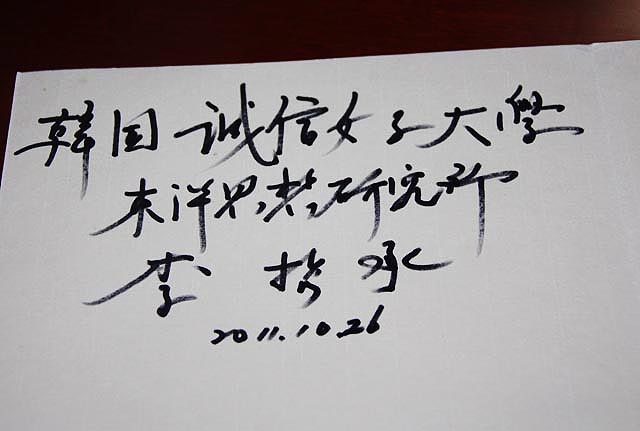 韓国 誠信女子大學
東洋思想研究所
李 哲 承
2011.10.26